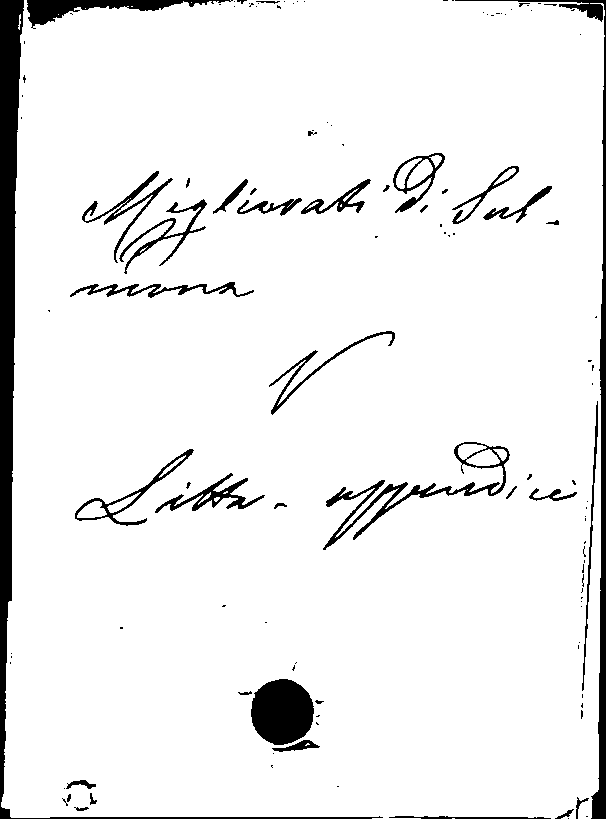 Migliorati di Sul-
mona
V
Litta - appendice